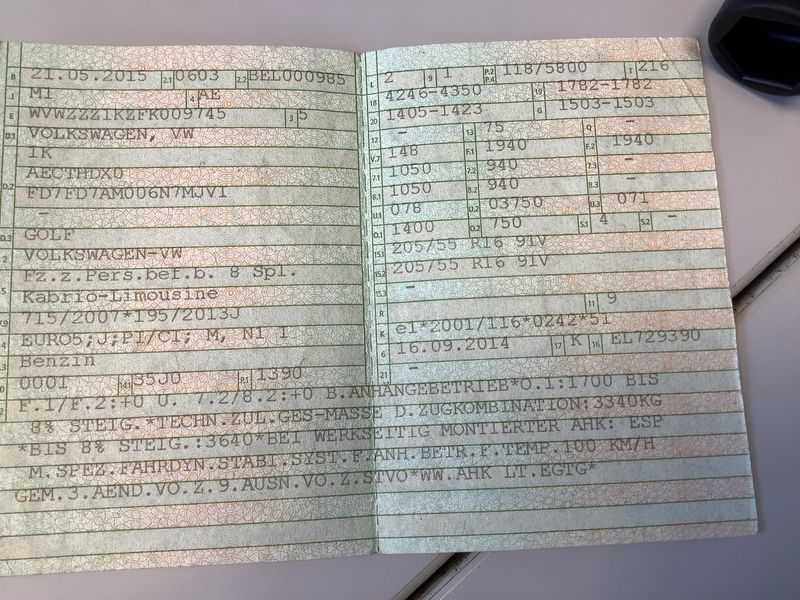 B 21.05.2015 2.1 0603 2.2 BEL000985
J M1 4 AE
E WVWZZZ1KZFK009745 3 5
D.1 VOLKSWAGEN, VW
1K
D.2 AECTHDX0
FD7FD7AM006N7MJV1
-
D.3 GOLF
2 VOLKSWAGEN-VW
5 Fz.z.Pers.bef.b. 8 Spl.
Kabrio-Limousine
V.9 715/2007*195/2013J
EURO5;J;PI/CI; M, N1 I
Benzin
0001 14.1 35J0 P.1 1390
L 2 9 1 P.2 P.4 118/5800 T 216
18 4246-4350 19 1782-1782
20 1405-1423 G 1503-1503
12 - 13 75 Q -
V.7 148 F.1 1940 F.2 1940
7.1 1050 7.2 940 7.3 -
8.1 1050 8.2 940 8.3 -
U.1 078 U.2 03750 U.3 071
O.1 1400 O.2 750 S.1 4 S.2 -
15.1 205/55 R16 91V
15.2 205/55 R16 91V
15.3 -
R 11 9
K e1*2001/116*0242*51
6 16.09.2014 17 K 16 EL729390
21 -
F.1/F.2:+0 U. 7.2/8.2:+0 B.ANHANGEBETRIEB*O.1:1700 BIS
8% STEIG.*TECHN.ZUL.GES-MASSE D.ZUGKOMBINATION:3340KG
*BIS 8% STEIG.:3640*BEI WERKSEITIG MONTIERTER AHK: ESP
M.SPEZ.FAHRDYN.STABI.SYST.F.ANH.BETR.F.TEMP.100 KM/H
GEM.3.AEND.VO.Z.9.AUSN.VO.Z.STVO*WW.AHK LT.EGTG*